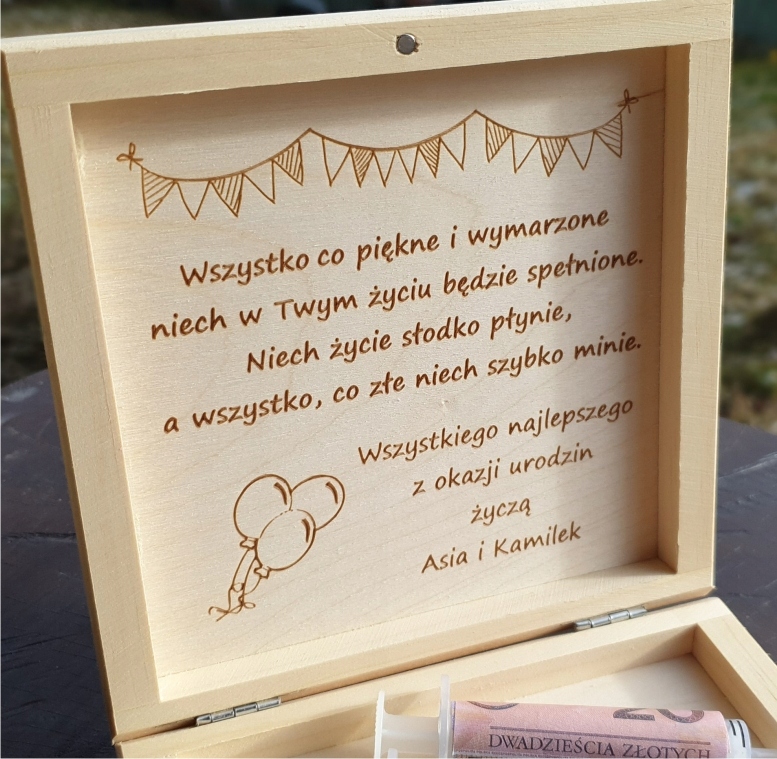 Wszystko co piękne i wymarzone
niech w Twym życiu będzie spełnione.
Niech życie słodko płynie,
a wszystko, co złe niech szybko minie.
Wszystkiego najlepszego
z okazji urodzin
życzą
Asia i Kamilek
20
DWADZIEŚCIA ZŁOTYCH